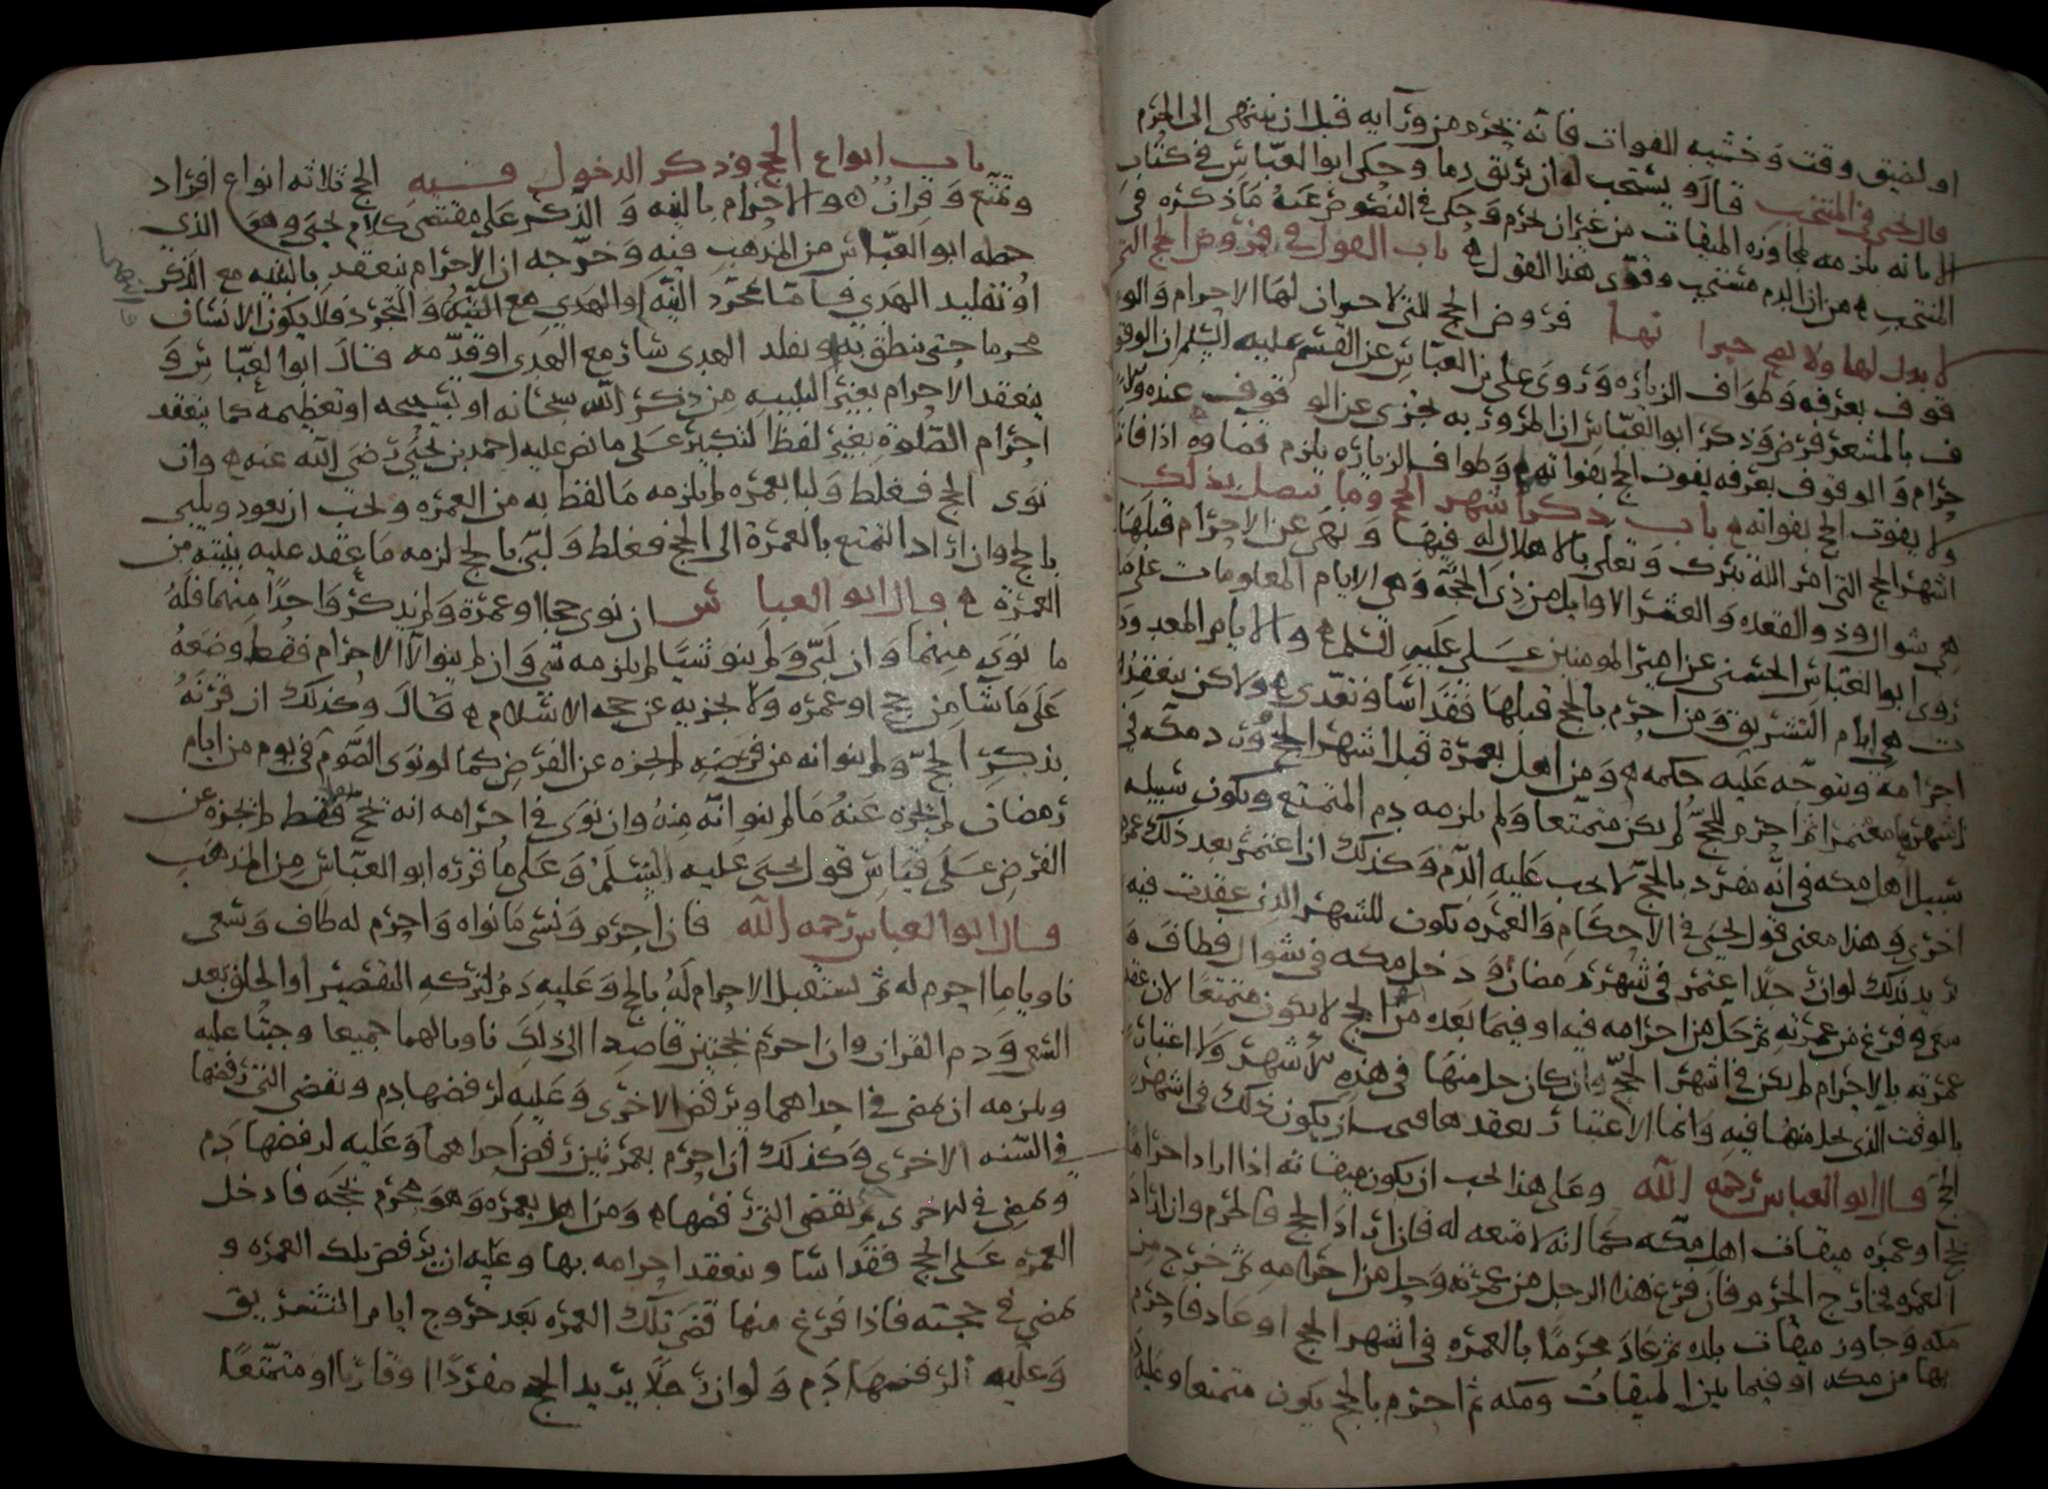 او لضيق وقت وخشيه الفوات فانه يحرم من ورآيه قبل ان ينتهي إلى الحرم
قال يحيى في المنتخب قال ويستحب له ان يريق دما وحكى ابوالعباس في كتاب
الابانه يلزمه لمجاوزه الميقات من غير ان يحرم وحكى في النصوص عنه ما ذكره في
المنتخب من ان الدم مستحب وقوى هذا القول باب القول في فروض الحج التي
لا بدل لها ولا لها فروض الحج التي لا جبران لها الاحرام والو
قوف بعرفه وطواف الزياره وروى علي بن العباس عن القسم عليه السلم ان الوقو
ف بالمشعر فرض وذكر ابوالعباس ان المرور به يجزي عن الوقوف عنده
حرام والوقوف بعرفه يفوت الحج بفواته وطواف الزياره يلزم قضاوه اذا فات
ولا يفوت الحج بفواته باب ذكر اشهر الحج وما يتصل بذلك
اشهر الحج التي امر الله تبرك وتعلى بالاهلال له فيها ونهى عن الاحرام قبلها
هي شوال وذو القعده والعشر الاوايل من ذي الحجة وهي الايام المعلومات على ما
روى ابوالعباس الحسني عن امير المومنين علي عليه السلم والايام المعدودا
ت هي ايام التشريق ومن احرم بالحج قبلها فقد اسا وتعدى ولاكن ينعقد
احرامه ويتوجه عليه حكمه ومن اهل بعمرة قبل اشهر الحج وورد مكه في
اشهر الحج معتمرا ثم احرم للحج لم يكن متمتعا ولم يلزمه دم المتمتع ويكون سبيله
سبيل اهل مكه في انه مفرد بالحج لا يجب عليه الدم وكذلك اذا اعتمر بعد ذلك عمره
اخرى وهذا معنى قول يحيى في الاحكام والعمره تكون للشهر الذي عقدت فيه
يريد بذلك لو ان رجلا اعتمر في شهر رمضان ودخل مكه في شوال فطاف و
سعى وفرغ من عمرته ثم حل من احرامه فيه او فيما بعده من اشهر الحج لا يكون متمتعا لان عقد
عمرته بالاحرام لم يكن في اشهر الحج وان كان حل منها في هذه الاشهر ولا اعتبار
بالوقت الذي يحل منها فيه وانما الاعتبار بعقدها ان يكون ذلك في اشهر
الحج قال ابو العباس رحمه الله وعلى هذا يجب ان يكون ميقاته اذا اراد احراما
بحج او عمره ميقات اهل مكه كما انه لا متعه له فان اراد الحج فالحرم وان اراد
العمره فخارج الحرم فان فرغ هذا الرجل من عمرته وحل من احرامه ثم خرج من
مكه وجاوز ميقات بلده ثم عاد محرما بالعمره في اشهر الحج او عاد فاحرم
بها من مكه او فيما بين الميقات ومكه ثم احرم بالحج يكون متمتعا وعليه د
باب انواع الحج وذكر الدخول فيه الحج ثلاثه انواع افراد
وتمتع وقران والاحرام بالنيه والذكر على مقتضى كلام يحيى وهو الذي
حطه ابو العباس من المذهب فيه وخرجه ان الاحرام ينعقد بالنيه مع الذكر
او تقليد الهدي فاما بمجرد النيه او الهدي مع النيه والتجرد فلا يكون الانسان
محرما حتى ينطق به او يقلد الهدى سار مع الهدى او قدمه قال ابو العباس و
ينعقد الاحرام بغير التلبيه من ذكر الله سبحانه او تسبيحه او تعظيمه كما ينعقد
احرام الصلوة بغير لفظ التكبير على ما نص عليه احمد بن يحيى رضي الله عنه وان
نوى الحج فغلط ولبا بعمره لم يلزمه ما لفظ به من العمره ويجب ان يعود ويلبي
بالحج وان اراد التمتع بالعمرة الى الحج فغلط ولبى بالحج لزمه ما عقد عليه بنيته من
العمرة قال ابو العباس ان نوى حجا او عمرة ولم يذكر واحدا منهما فله
ما نوى منهما وان لبى ولم ينو شيا لم يلزمه شي وان لم ينو الا الاحرام فقط وضعه
على ما شا من حج او عمره ولا يجزيه عن حجه الاسلام قال وكذلك ان قرنه
بذكر الحج ولم ينو انه من فرضه لم يجزه عن الفرض كما لو نوى الصوم في يوم من ايام
رمضان لم يجزه عنه ما لم ينو انه منه وان نوى في احرامه انه بحج فقط لم يجزه عن
الفرض على قياس قول يحيى عليه السلم وعلى ما قرره ابو العباس من المذهب
قال ابو العباس رحمه الله فان احرم ونسي ما نواه واحرم له طاف وسعى
ناويا ما احرم له ثم يستقبل الاحرام له بالحج وعليه دم لتركه التقصير او الحلق بعد
السعي ودم القران وان احرم بحجتين قاصدا الى ذلك ناويا لهما جميعا وجبتا عليه
ويلزمه ان يمضي في احداهما ويرفض الاخرى وعليه لرفضها دم ويقضي التي رفضها
في السنه الاخرى وكذلك ان احرم بعمرتين رفض احداهما وعليه لرفضها دم
ويمضي في الاخرى ويقضي التي رفضها ومن اهل بعمره وهو محرم بحجه فادخل
العمره على الحج فقد اسا وينعقد احرامه بها وعليه ان يرفض تلك العمره و
يمضي في حجته فاذا فرغ منها قضى تلك العمره بعد خروج ايام التشريق
وعليه لرفضها دم ولو ان رجلا يريد الحج مفردا او قارنا او متمتعا